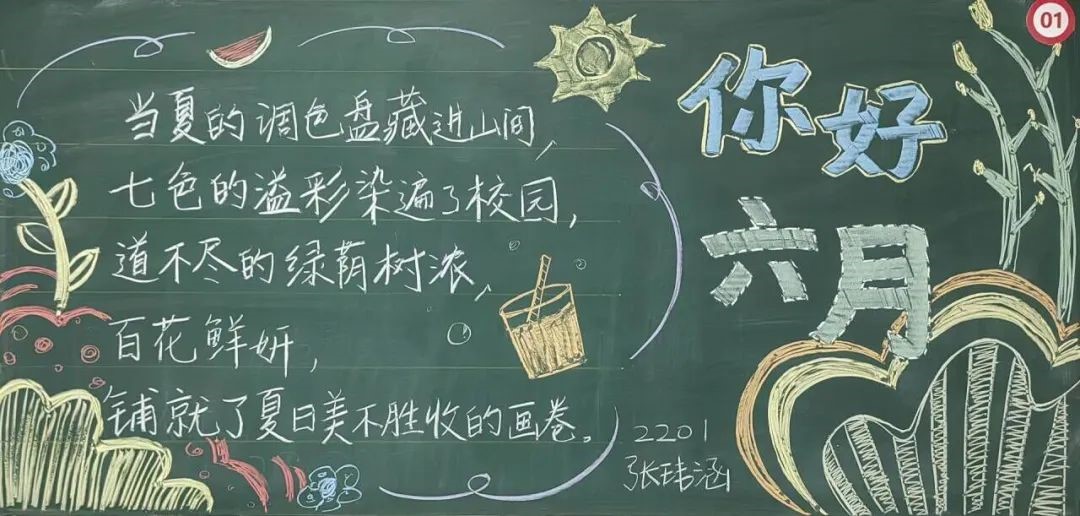 01
你好
六月
当夏的调色盘藏进山间，
七色的溢彩染遍了校园，
道不尽的绿荫树浓，
百花鲜妍，
铺就了夏日美不胜收的画卷。
2201
张玮涵